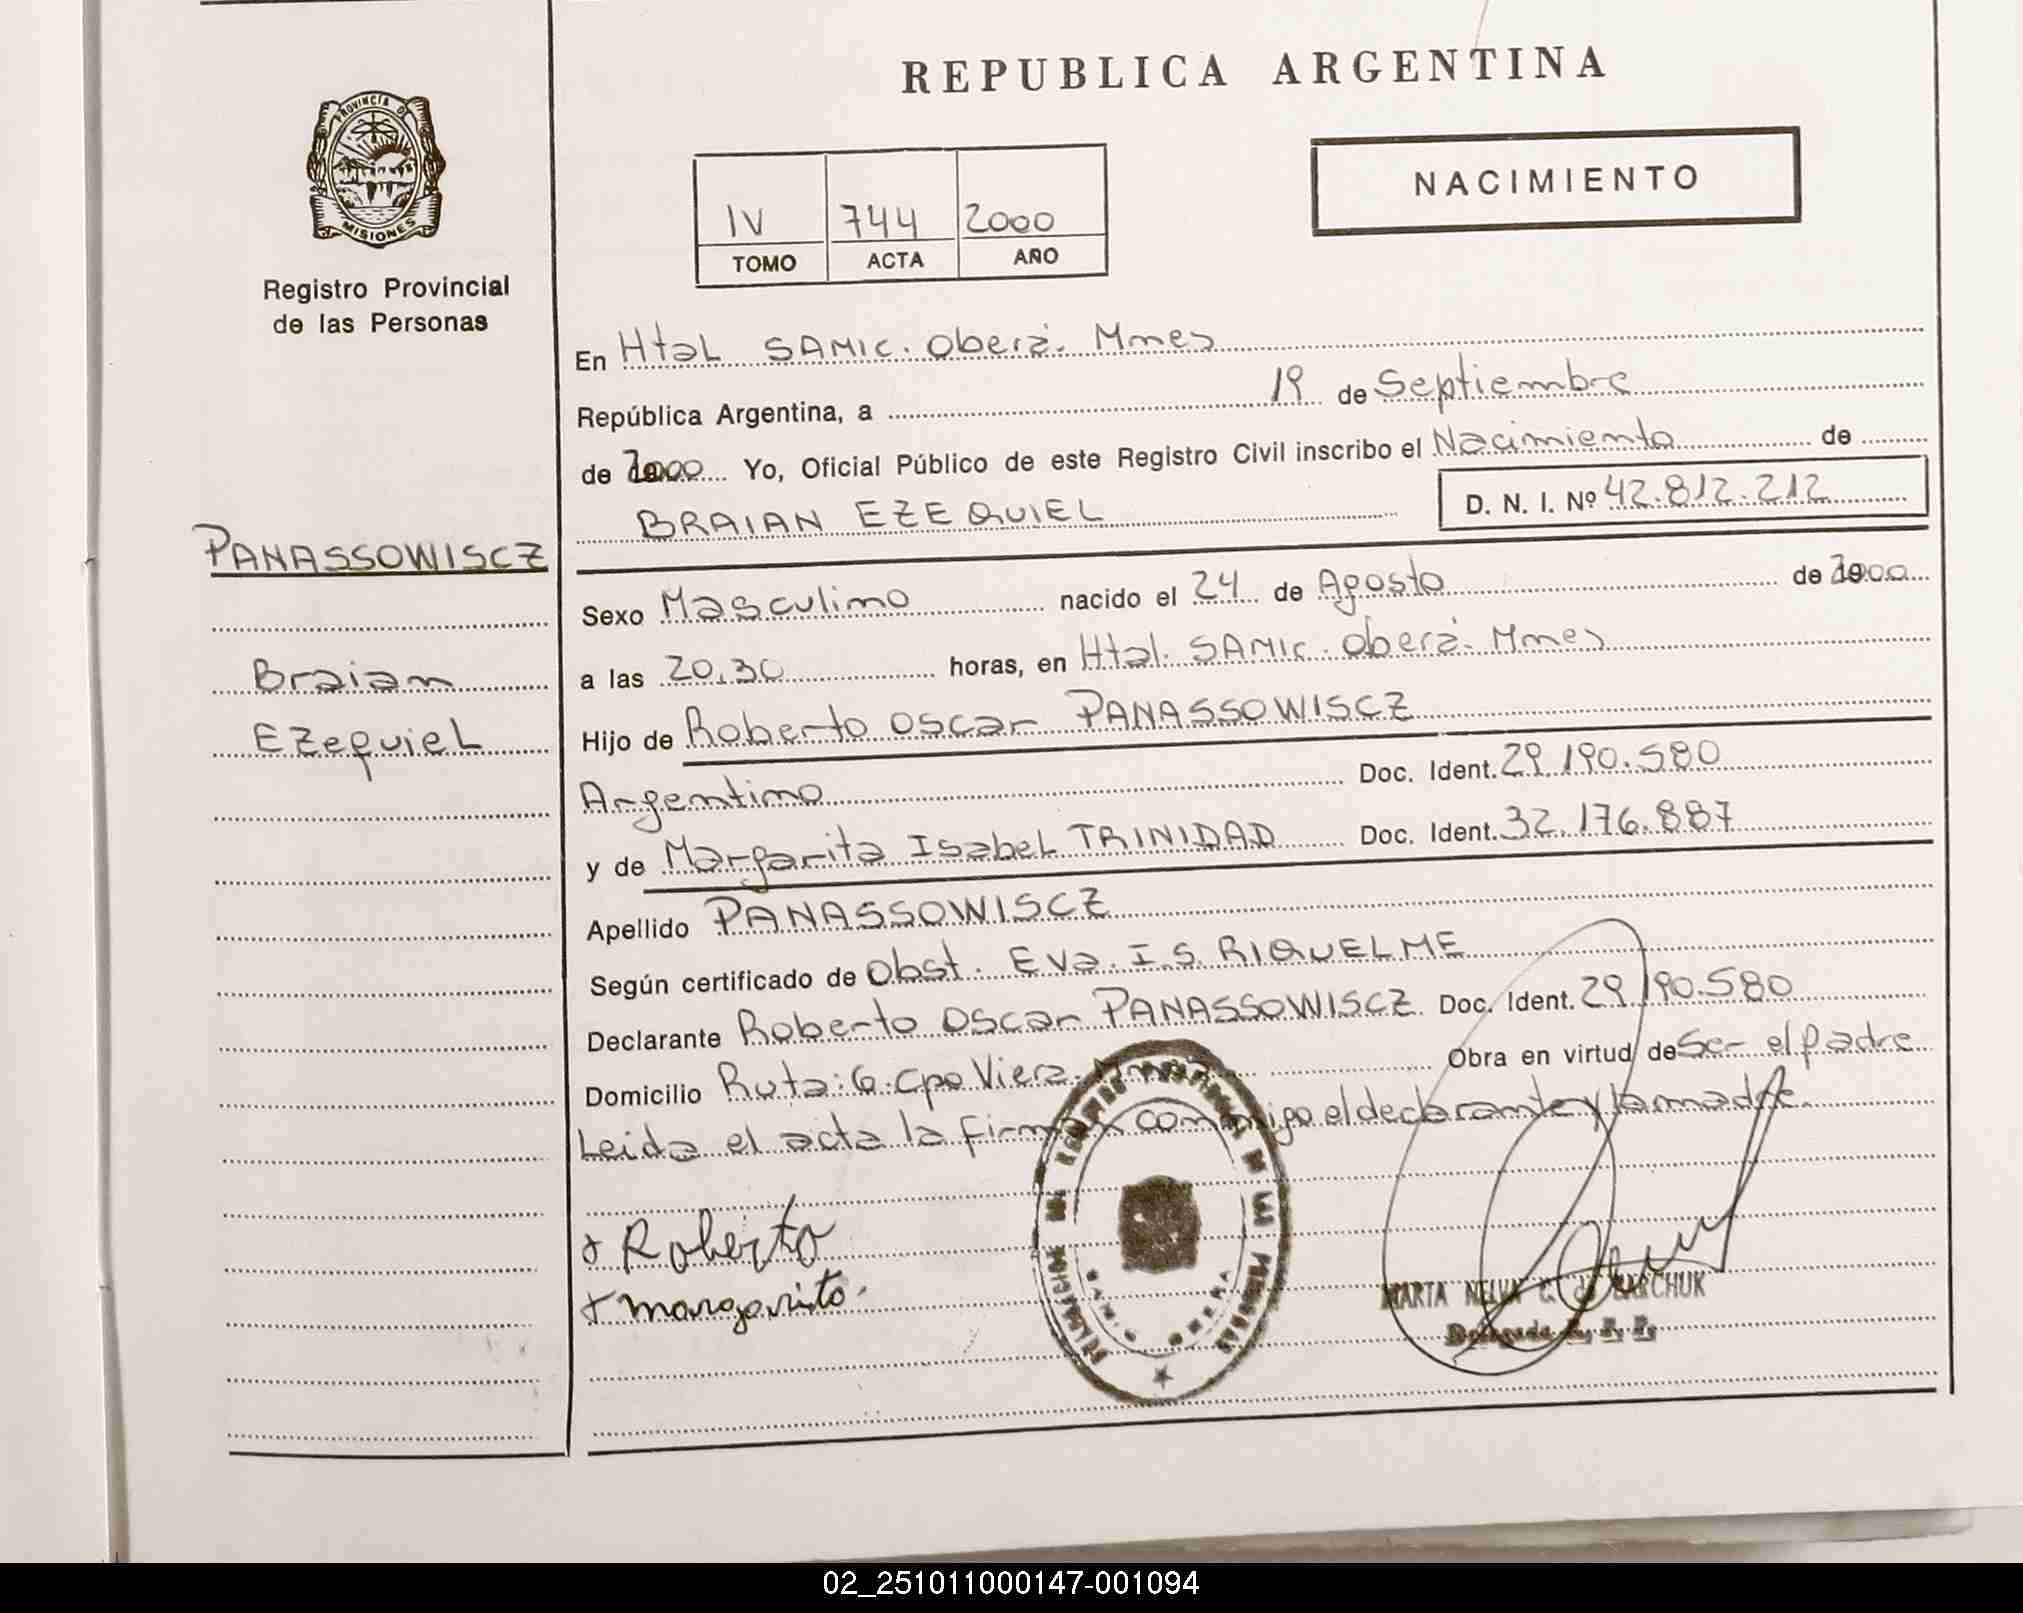 REPUBLICA ARGENTINA
PROVINCIA DE
MISIONES
Registro Provincial
de las Personas
NACIMIENTO
IV 744 2000
TOMO ACTA AÑO
En Htal SAMIC. Oberá. Mnes
República Argentina, a 19 de Septiembre
de 2000 Yo, Oficial Público de este Registro Civil inscribo el Nacimiento de
BRAIAN EZEQUIEL D. N. I. Nº 42.812.212
PANASSOWISCZ
Braian
Ezequiel
Sexo Masculino nacido el 24 de Agosto de 2000
a las 20,30 horas, en Htal. SAMIC. Oberá. Mnes
Hijo de Roberto Oscar PANASSOWISCZ
Argentino Doc. Ident. 29.190.580
y de Margarita Isabel TRINIDAD Doc. Ident. 32.176.887
Apellido PANASSOWISCZ
Según certificado de Obst. Eva. I.S. RIQUELME
Declarante Roberto Oscar PANASSOWISCZ Doc. Ident. 29.190.580
Domicilio Ruta: 6. Cpo Viera. Obra en virtud de Ser el padre
Leida el acta la firman conmigo el declarante y la madre.
x Roberto
x margarito.
MARTA NELVA C. de
Delegada R. P. P.
02_251011000147-001094